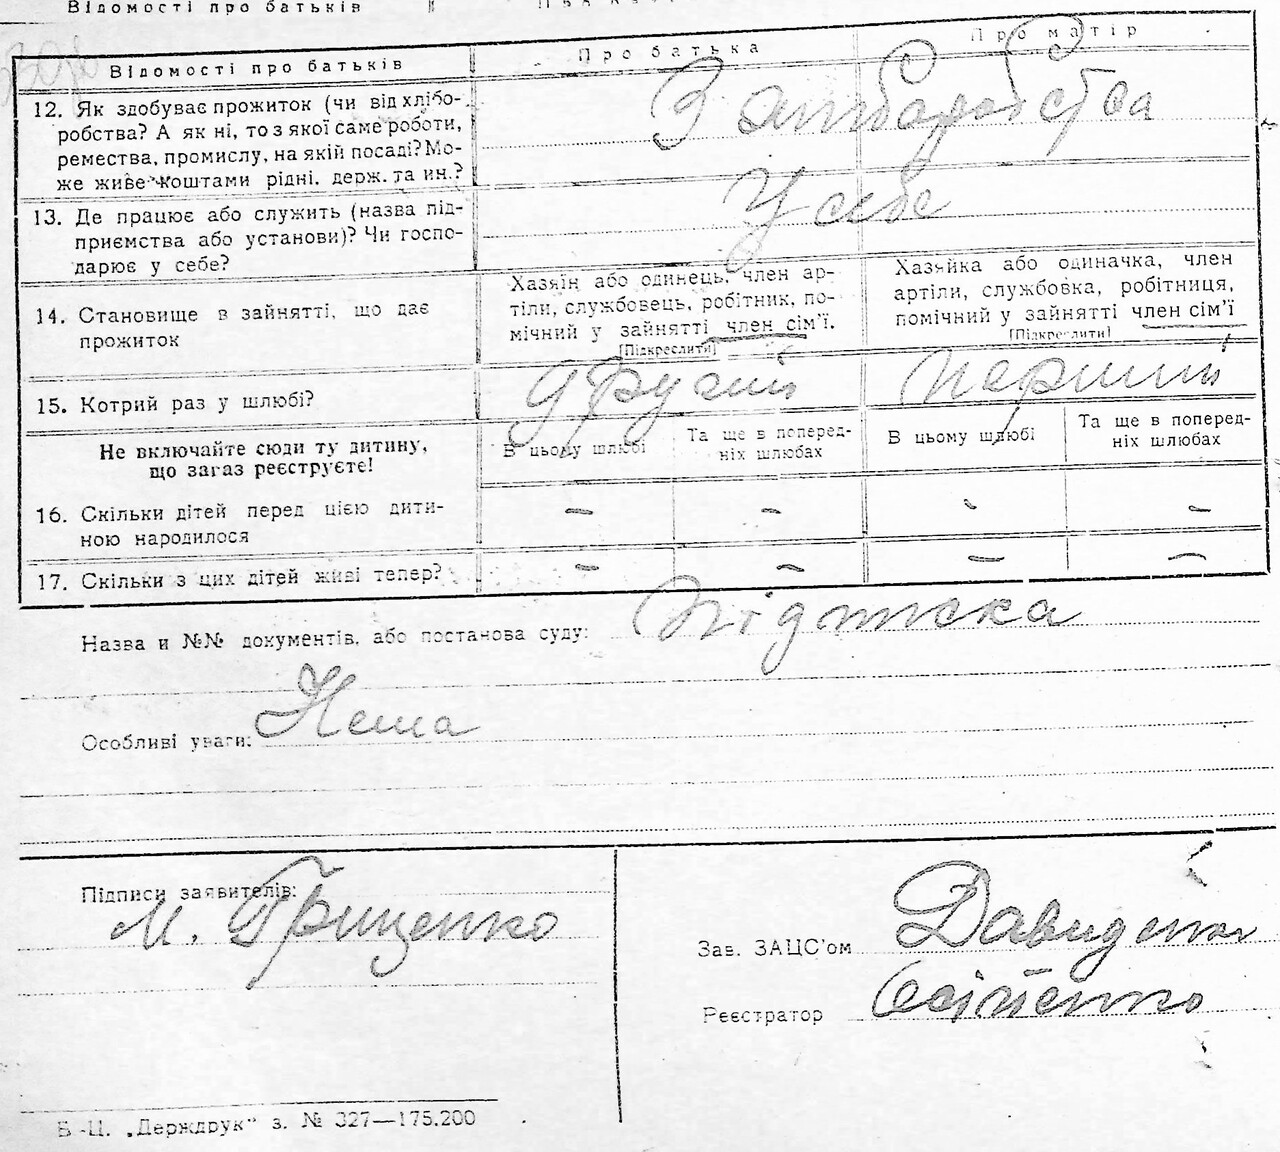 Відомості про батьків
Відомості про батьків
Про батька
Про матір
12. Як здобуває прожиток (чи від хлібо-
робства? А як ні, то з якої саме роботи,
ремества, промислу, на якій посаді? Мо-
же живе коштами рідні, держ. та ин.?
З хліборобства
13. Де працює або служить (назва під-
приємства або установи)? Чи госпо-
дарює у себе?
У себе
14. Становище в зайнятті, що дає
прожиток
Хазяїн або одинець, член ар-
тіли, службовець, робітник, по-
мічний у зайнятті член сім'ї.
[Підкреслити]
Хазяйка або одиначка, член
артіли, службовка, робітниця,
помічний у зайнятті член сім'ї
[Підкреслити]
15. Котрий раз у шлюбі?
другий
перший
Не включайте сюди ту дитину,
що зараз реєструєте!
В цьому шлюбі
Та ще в поперед-
ніх шлюбах
В цьому шлюбі
Та ще в поперед-
ніх шлюбах
16. Скільки дітей перед цією дити-
ною народилося
— — - —
17. Скільки з цих дітей живі тепер?
— — — —
Назва и №№ документів, або постанова суду: підписка
Особливі уваги: Нема
Підписи заявителів:
М. Гриценко
Зав. ЗАЦС'ом
Реєстратор Осіпенко
Б.-Ц. „Держдрук" з. № 327—175.200